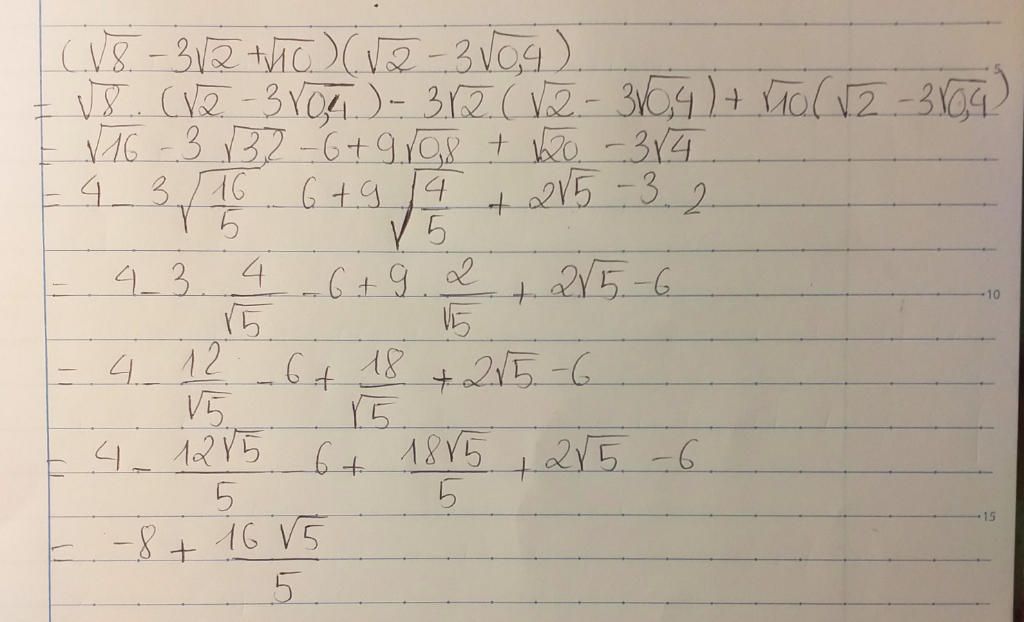 (√8 - 3√2 + √10)(√2 - 3√0,4)
= √8 . (√2 - 3√0,4) - 3√2 (√2 - 3√0,4) + √10(√2 - 3√0,4)
= √16 - 3√3,2 - 6 + 9√0,8 + √20 - 3√4
= 4 - 3√(16/5) - 6 + 9√(4/5) + 2√5 - 3 . 2
= 4 - 3 . 4/√5 - 6 + 9 . 2/√5 + 2√5 - 6
= 4 - 12/√5 - 6 + 18/√5 + 2√5 - 6
= 4 - 12√5/5 - 6 + 18√5/5 + 2√5 - 6
= -8 + 16√5/5
5
10
15